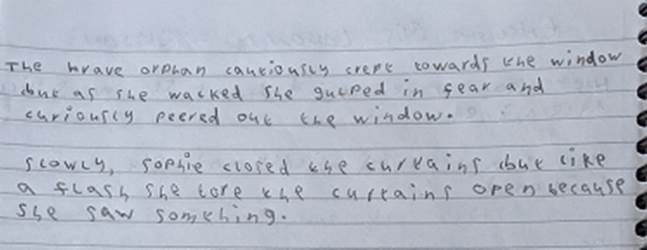 The brave orphan cautiously crept towards the window
but as she walked she gulped in fear and
curiously peered out the window.
Slowly, Sophie closed the curtains but like
a flash she tore the curtains open because
she saw somthing.